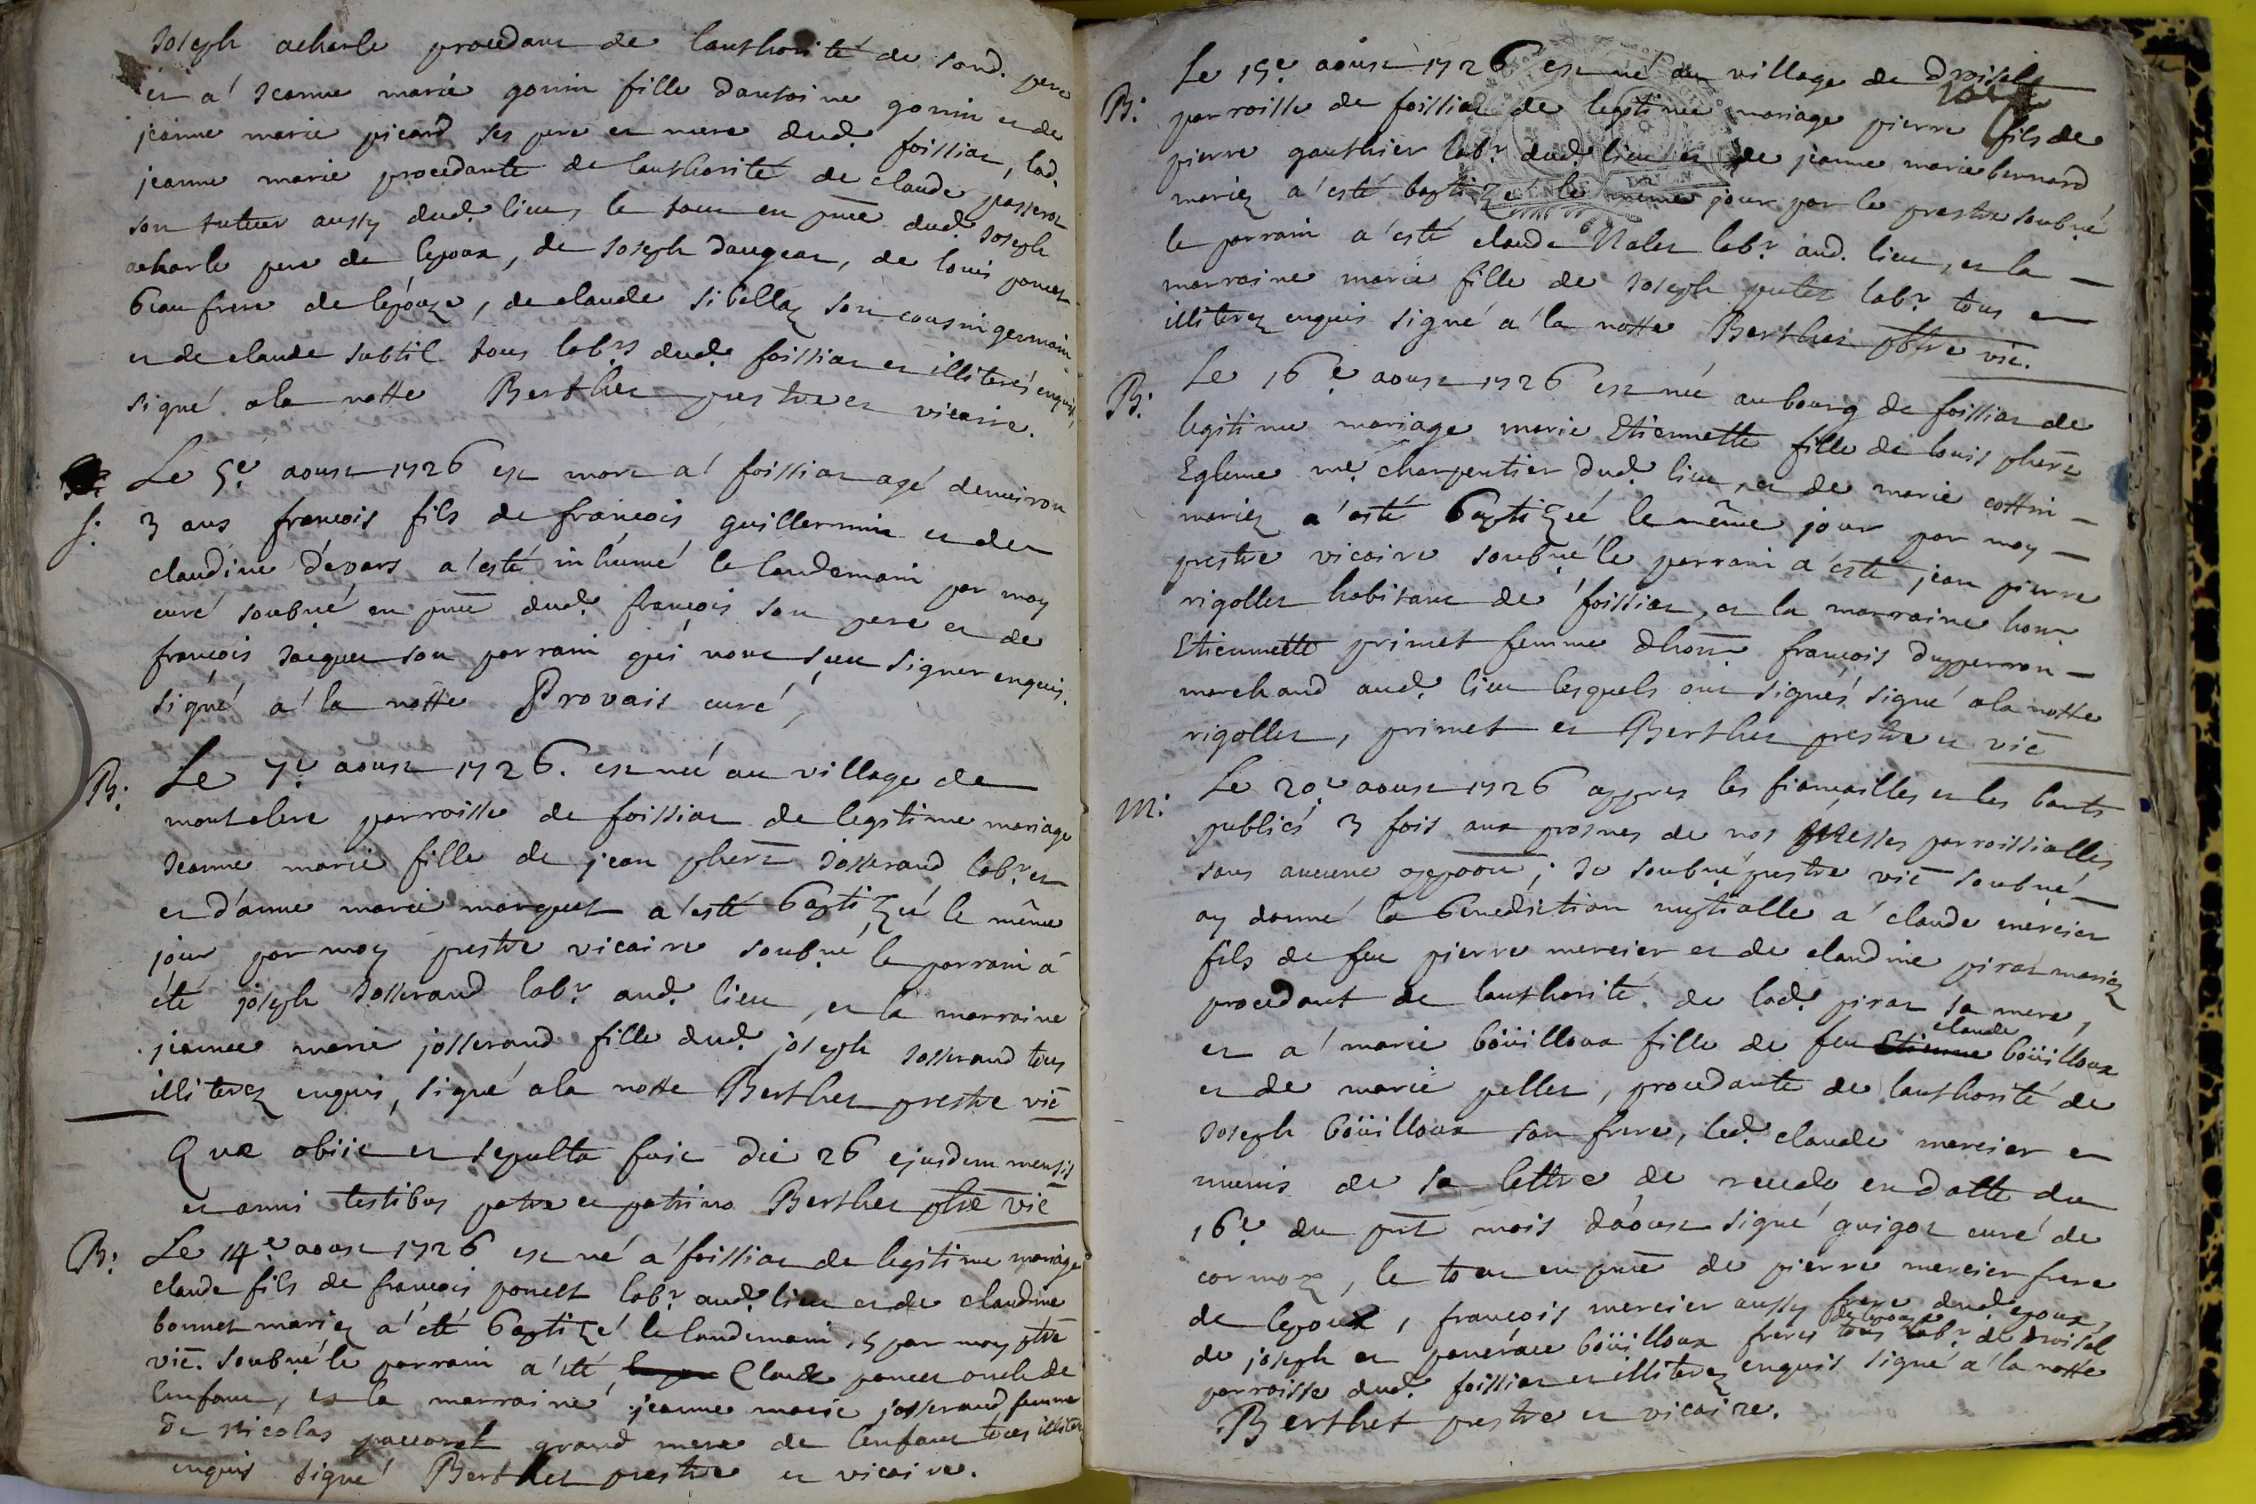 Joseph acharle procedant de lauthorité de sond. pere
et a' Jeanne marie gonin fille dantoine gonin et de
jeanne marie picard ses pere et mere dud. foissiat, lad.
jeanne marie procedante de lauthorité de claude passerat
son tuteur aussy dud. lieu, le tout en pnce dud. Joseph
acharle pere de lepoux, de Joseph daugeat, de louis poncet
beaufrere de lépouze, de claude sibellaz son cousin germain
et de claude subtil tous labrs dud. foissiat et illiterés enquis,
signé a la notte Berthet prestre et vicaire.
S: Le 5e aoust 1726 est mort a' foissiat agé denviron
3 ans francois fils de francois guillermin et de
claudine dévars a'esté inhumé le landemain par moy
curé soubné en pnce dud. françois son pere et de
françois Jacquet son parrain qui n'ont sceu signer enquis.
signé a' la notte Provais curé,
B: Le 7e aoust 1726. est née au village de
montclere parroisse de foissiat de legitime mariage
Jeanne marie fille de jean phert Josserand labr. et
et d'anne marie marquet a'esté baptizée le même
jour par moy prestre vicaire soubné le parrain a
été joseph Josserand labr. aud. lieu, et la marraine
jeanne marie josserand fille dud. joseph Josserand tous
illiterez enquis, signé a la notte Berthet prestre vic
Quæ obiit et sepulta fuit die 26 ejusdem mensis
et anni testibus patre et patrino Berthet ptre vic
B: Le 14e aoust 1726 est né a' foissiat de legitime mariage
claude fils de francois poncet labr. aud. lieu et de claudine
bonnet mariez a' été baptizé le landemain, par moy ptre
vic. soubné le parrain a'été Claude poncet oncle de
lenfant, et la marraine jeanne marie josserand femme
De Nicolas grand mere de lenfant tous illiterez
enquis signé Berthet prestre et vicaire.
B: Le 15e aoust 1726 est né au village de
parroisse de foissiat de legitime mariage pierre fils de
pierre gauthier labr. dud. lieu et de jeanne marie bernard
mariez a'esté baptizé le meme jour par le prestre soubné
le parrain a'esté claude Nalet labr. aud. lieu, et la
marraine marie fille de Joseph putet labr. tous
illiterez enquis signé a' la notte Berthet pbtre vic.
B: Le 16e aoust 1726 est née au bourg de foissiat de
legitime mariage marie Etiennette fille de louis phert
Egleme me charpentier dud. lieu, et de marie cottin
mariez a'esté baptizée le même jour par moy
prestre vicaire soubné le parrain a'esté jean pierre
rigollet habitant de foissiat, et la marraine hon
Etiennette primet femme dhon. françois dupperron
marchand aud. lieu lesquels ont signés, signé a la notte
rigollet, primet et Berthet prestre et vic
M: Le 20e aoust 1726 appres les fiançailles et les bants
publiés 3 fois aux prosnes de nos Messes parroissialles
sans aucune oppoon; Je soubné prestre vic soubné
ay donné la benediction nuptialle a' claude mercier
fils de feu pierre mercier et de claudine pirat mariez
procedant de lauthorité de lad. pirat sa mere,
et a' marie boüilloux fille de feu Etienne claude boüilloux
et de marie pellet, procedante de lauthorité de
Joseph boüilloux son frere, led. claude mercier
munis de sa lettre de recedo en datte du
16e du prt mois d'aoust signé guigot curé de
cormoz, le tout en pnce de pierre mercier frere
de lepoux, françois mercier aussy frere dud. epoux,
de joseph et boüilloux freres de lepouze tous labr. de
parroisse dud. foissiat et illiterez enquis signé a' la notte
Berthet prestre et vicaire.